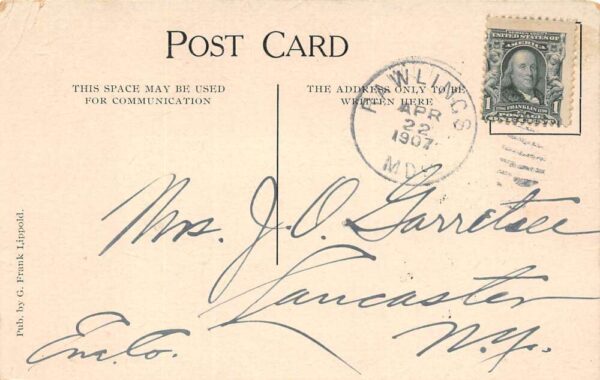 POST CARD
THIS SPACE MAY BE USED
FOR COMMUNICATION
THE ADDRESS ONLY TO BE
WRITTEN HERE
RAWLINGS
APR
22
1907
MD.
SERIES 1902
UNITED STATES OF
AMERICA
1 FRANKLIN 1
POSTAGE
Mrs. J. O. Garretsee
Lancaster
Erie Co. N.Y.
Pub. by G. Frank Lippold.